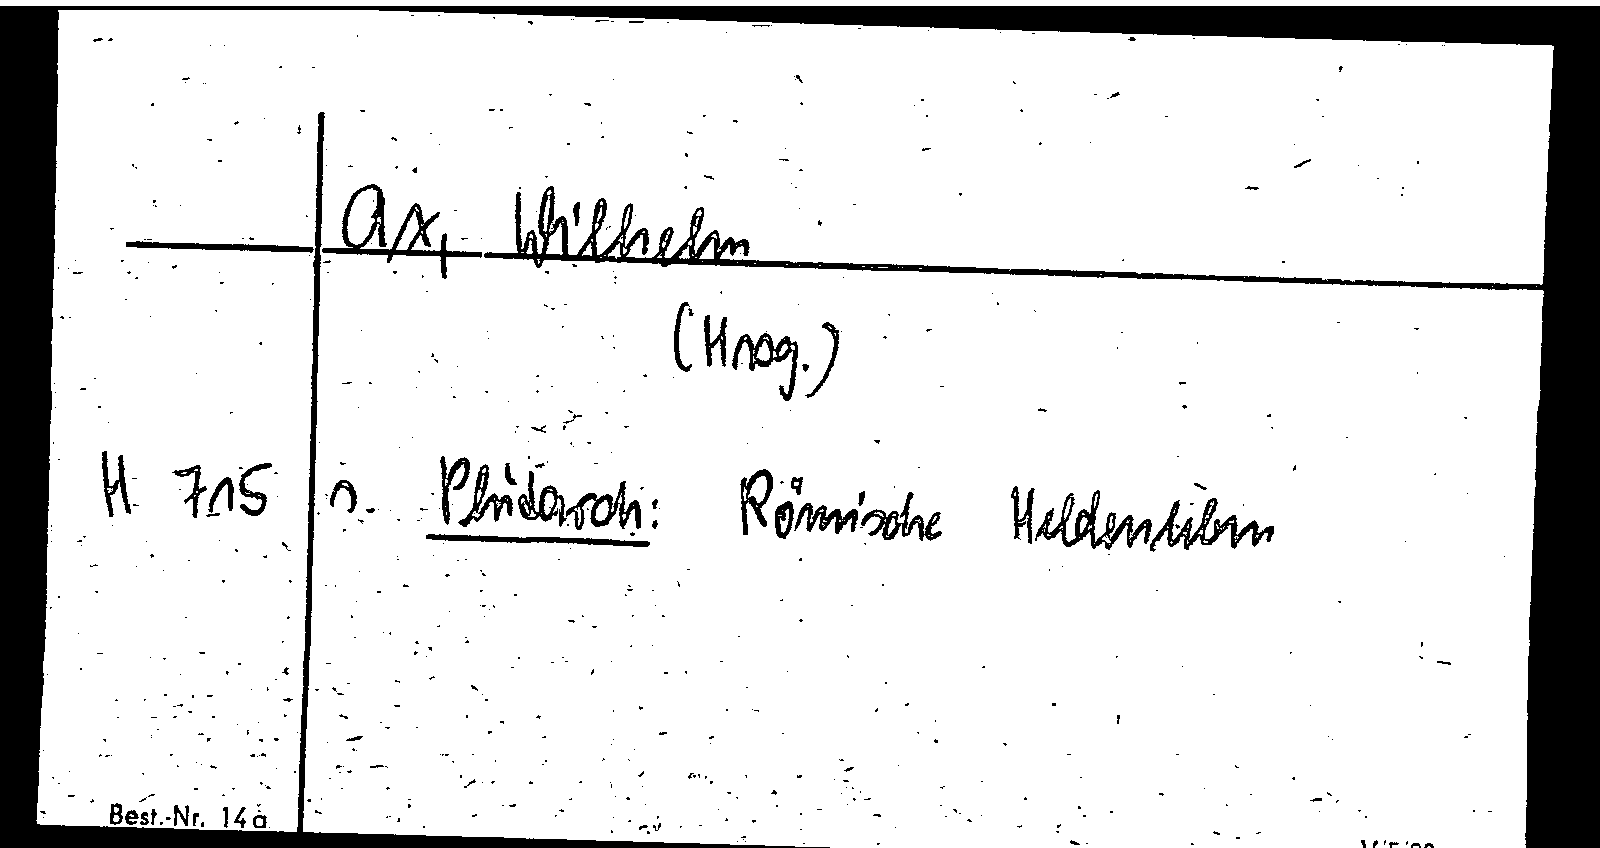 Ax, Wilhelm
(Hrsg.)
H 715 s. Plutarch: Römische Heldenleben
Best.-Nr. 14a